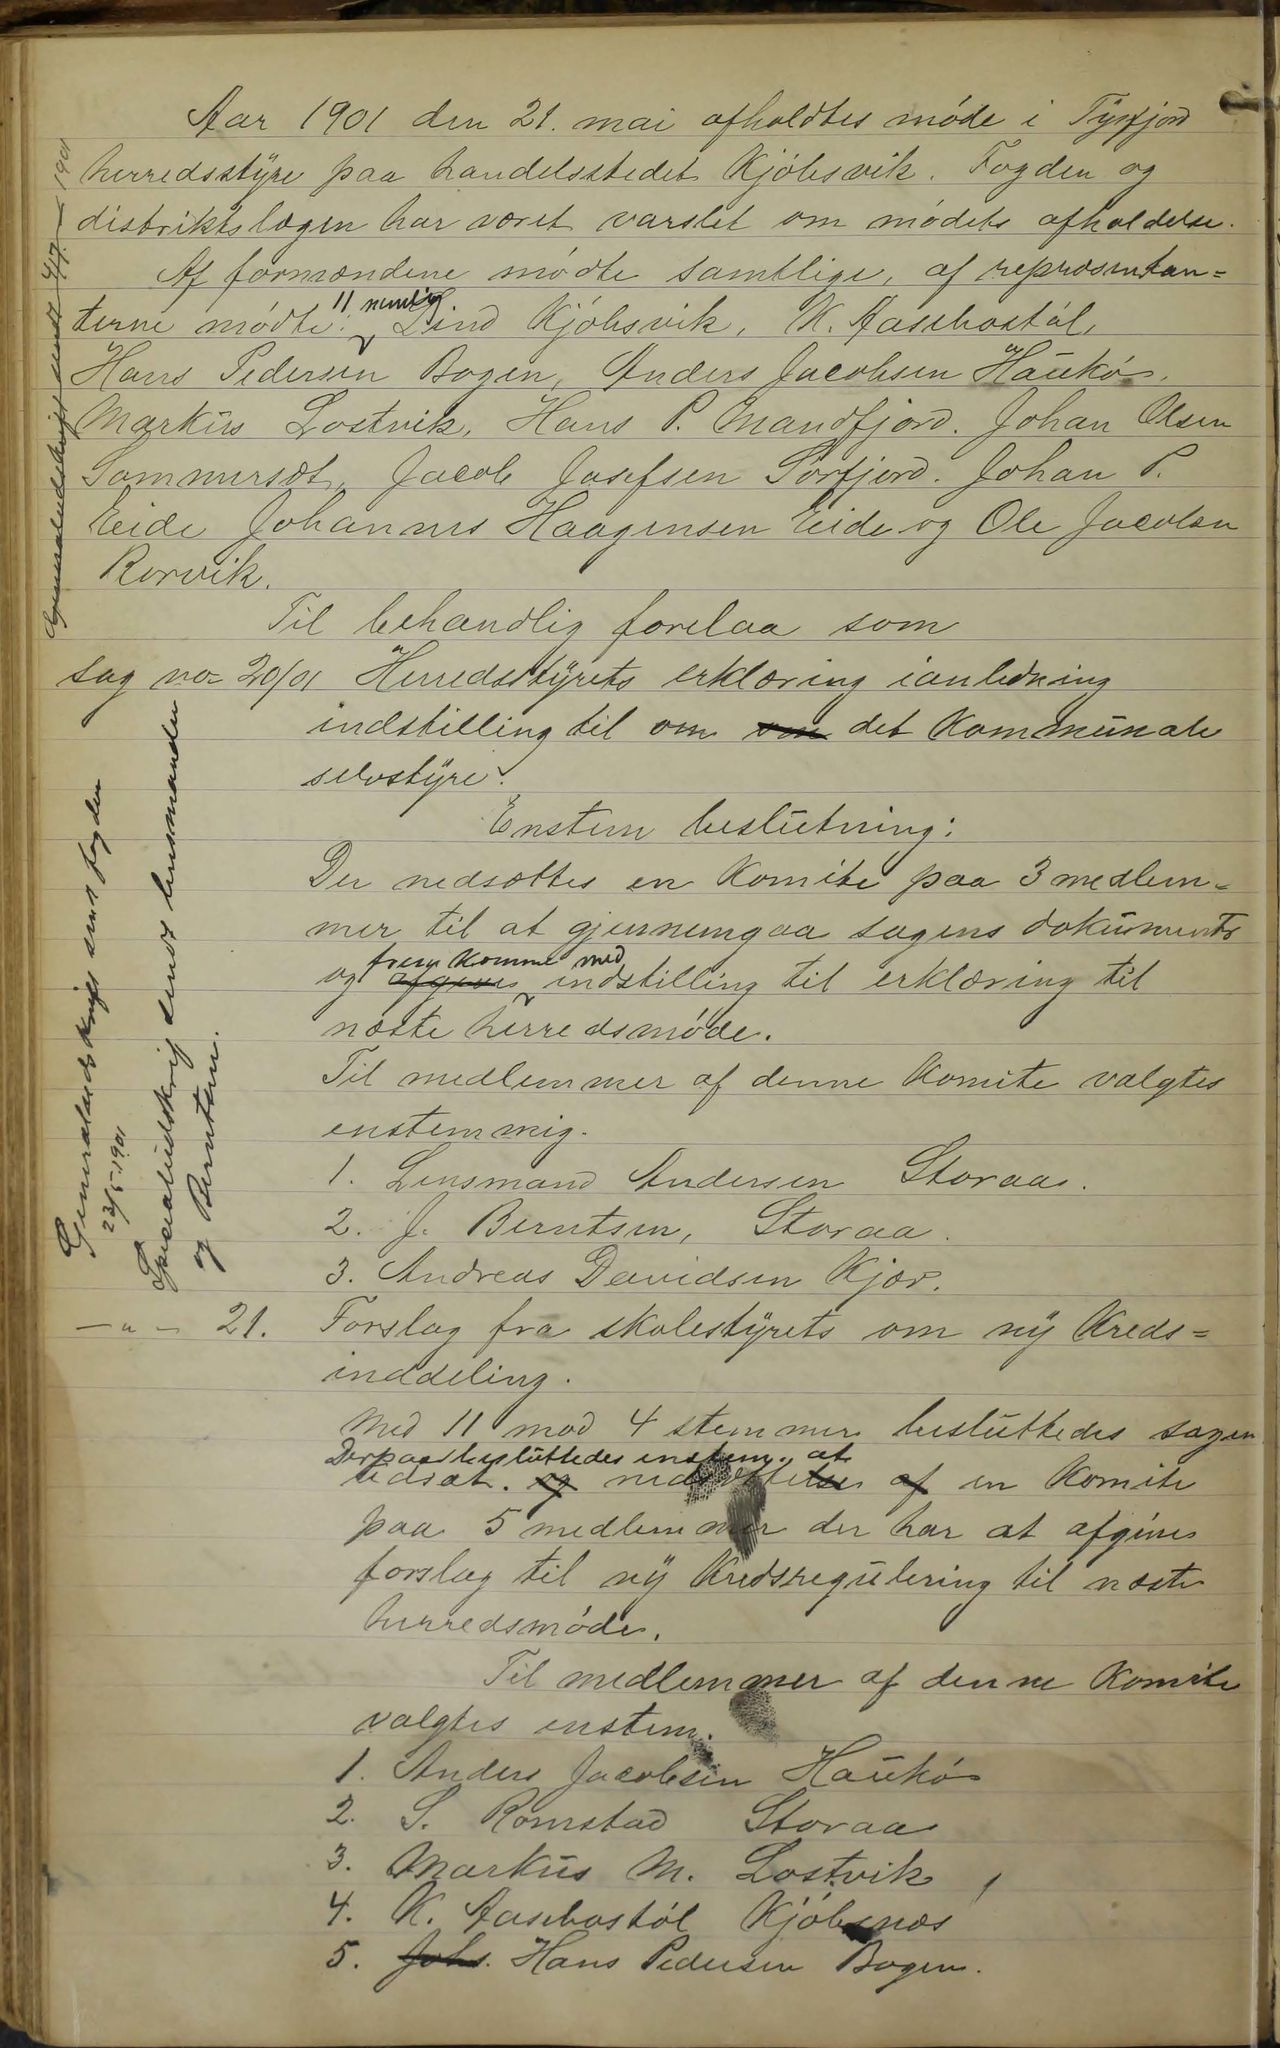 Aar 1901 den 21. mai afholdtes møde i Tysfjord
herredsstyre paa handelsstedet Kjøbsvik. Fogden og
distriktslægen har været varslet om mødets afholdelse.
Af formændene mødte samtlige, af repræsentan=
terne mødte 11 nemlig Lind Kjøbsvik, K. Aasebostøl,
Hans Pedersen Bogen, Anders Jacobsen Haukø,
Markus Lostvik, Hans P. Mandfjord. Johan Olsen
Sommerset, Jacob Josefsen Sørfjord. Johan P.
Eide Johannes Haagensen Eide og Ole Jacobsen
Rorvik.
Til behandlig forelaa som
sag no 20/01 Herredsstyrets erklæring ianledning
indstilling til om om det Kommunale
selvstyre.
Enstem beslutning:
Der nedsættes en Komite paa 3 medlem=
mer til at gjennemgaa sagens dokumenter
og afgives frem komme med indstilling til erklæring til
næste herredsmøde.
Til medlemmer af denne Komite valgtes
enstemmig.
1. Lensmand Andersen Storaa.
2. J. Berntsen, Storaa.
3. Andreas Davidsen Kjær.
— " — 21. Forslag fra skolestyrets om ny Kreds=
inddeling.
Med 11 mod 4 stemmer besluttedes sagen
Derpaa besluttedes enstem. at
udsat. og nedsættelse af en Komite
paa 5 medlemmer der har at afgive
forslag til ny Kredsregulering til næste
herredsmøde.
Til medlemmer af denne Komite
valgtes enstem.
1. Anders Jacobsen Haukø
2. S. Romstad Storaa
3. Markus M. Lostvik
4. K. Aasebostøl Kjøbsnes
5. Johs. Hans Pedersen Bogen.
Generaludskrift sendt 4/7 — 1901
Generaludskrift sendt fogden
23/5-1901
Specialudskrift sendt lensmanden
og Berntsen.